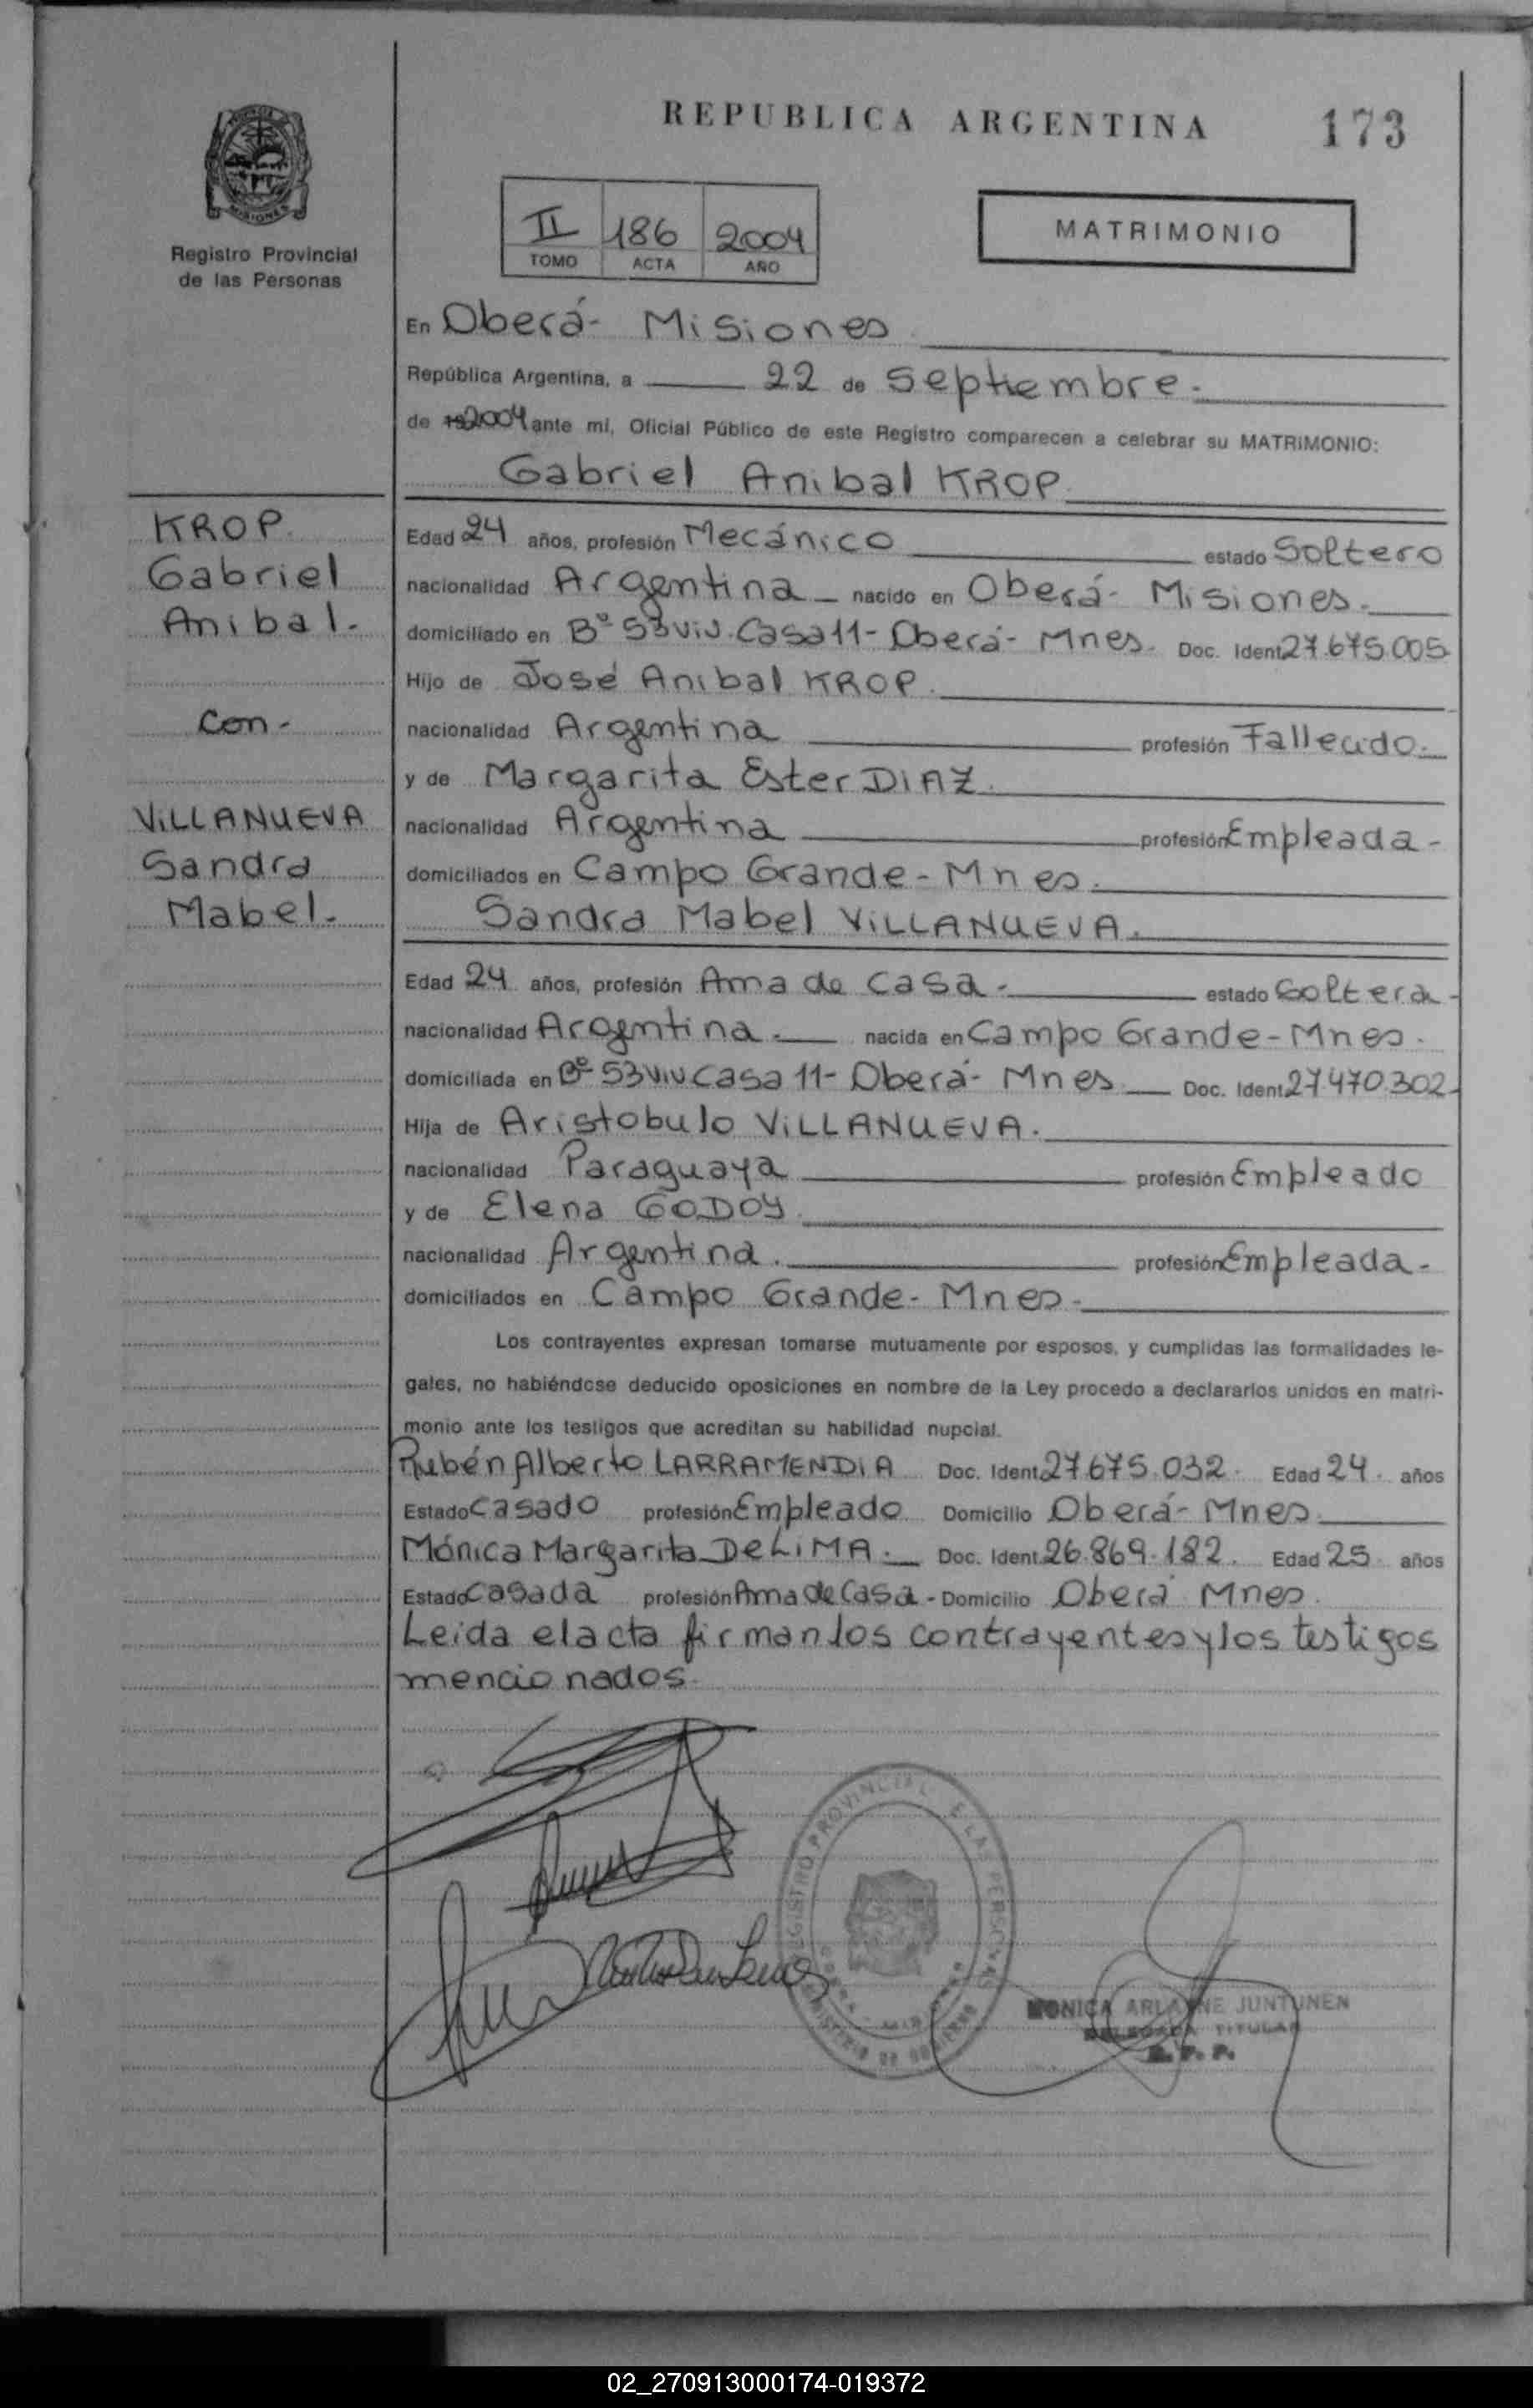 REPUBLICA ARGENTINA 173
MISIONES
Registro Provincial
de las Personas
II 186 2004
TOMO ACTA AÑO
MATRIMONIO
En Oberá- Misiones
República Argentina, a 22 de Septiembre.
de 192004 ante mí, Oficial Público de este Registro comparecen a celebrar su MATRIMONIO:
Gabriel Anibal KROP.
KROP.
Gabriel
Anibal.-
Con-
VILLANUEVA
Sandra
Mabel.-
Edad 24 años, profesión Mecánico estado Soltero
nacionalidad Argentina nacido en Oberá- Misiones.
domiciliado en Bº 53 viv. Casa 11- Oberá- Mnes. Doc. Ident. 27.675.005
Hijo de José Anibal KROP.
nacionalidad Argentina profesión Fallecido.
y de Margarita Ester DIAZ.
nacionalidad Argentina profesión Empleada-
domiciliados en Campo Grande- Mnes.
Sandra Mabel VILLANUEVA.
Edad 24 años, profesión Ama de Casa- estado Soltera-
nacionalidad Argentina. nacida en Campo Grande- Mnes.
domiciliada en Bº 53 viv Casa 11- Oberá- Mnes Doc. Ident. 27.470.302-
Hija de Aristobulo VILLANUEVA.
nacionalidad Paraguaya profesión Empleado
y de Elena GODOY.
nacionalidad Argentina. profesión Empleada-
domiciliados en Campo Grande- Mnes-
Los contrayentes expresan tomarse mutuamente por esposos, y cumplidas las formalidades le-
gales, no habiéndose deducido oposiciones en nombre de la Ley procedo a declararlos unidos en matri-
monio ante los testigos que acreditan su habilidad nupcial.
Rubén Alberto LARRAMENDIA Doc. Ident. 27.675.032. Edad 24. años
Estado Casado profesión Empleado Domicilio Oberá- Mnes.
Mónica Margarita De LiMA. Doc. Ident. 26.869.182. Edad 25 años
Estado Casada profesión Ama de Casa- Domicilio Oberá Mnes.
Leida el acta firman los contrayentes y los testigos
mencionados.
REGISTRO PROVINCIAL DE LAS PERSONAS
MINISTERIO DE GOBIERNO
MONICA ARLAYNE JUNTUNEN
DELEGADA TITULAR
R. P. P.
02_270913000174-019372